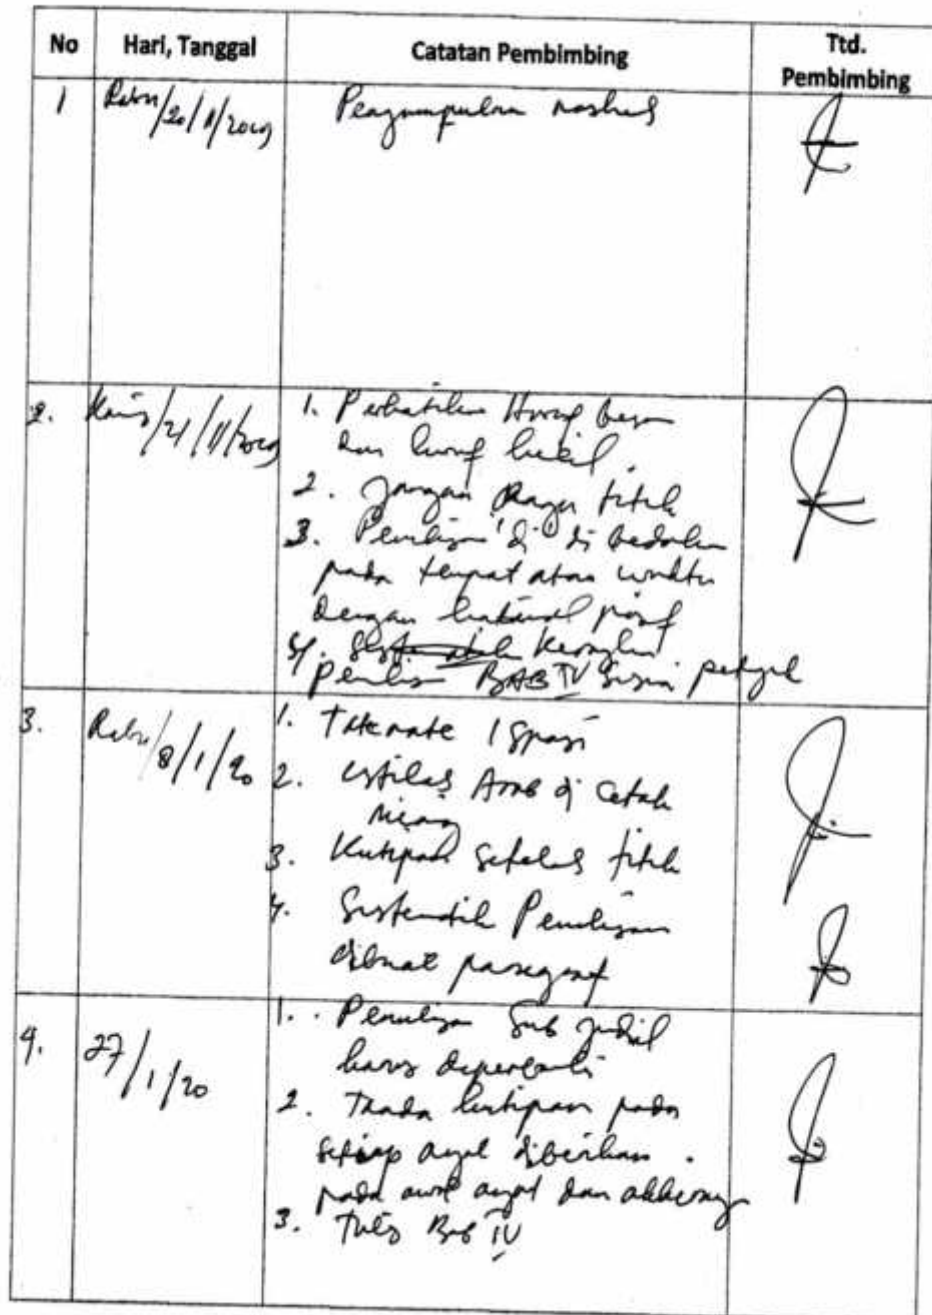 No Hari, Tanggal Catatan Pembimbing Ttd. Pembimbing
1 Rabu/20/11/2019 Pengumpulan naskah
2. Kamis/21/11/2019 1. Perhatikan Huruf besar
dan huruf kecil.
2. Jangan titik
3. Penulisan "di" di bedakan
pada tempat atau waktu
dengan
4. Sistematik Kerangka
Penulisan BAB IV
3. Rabu/8/1/20 1. 1 Spasi
2. Istilah Arab di Cetak
Miring
3. Kutipan Setelah titik
4. Sistematik Penulisan
dibuat paragraf
4. 27/1/20 1. Penulisan Sub judul
harus diperbaiki
2. Tanda kutipan pada
setiap ayat diberikan.
pada awal ayat dan akhirnya
3. Tulis Bab IV